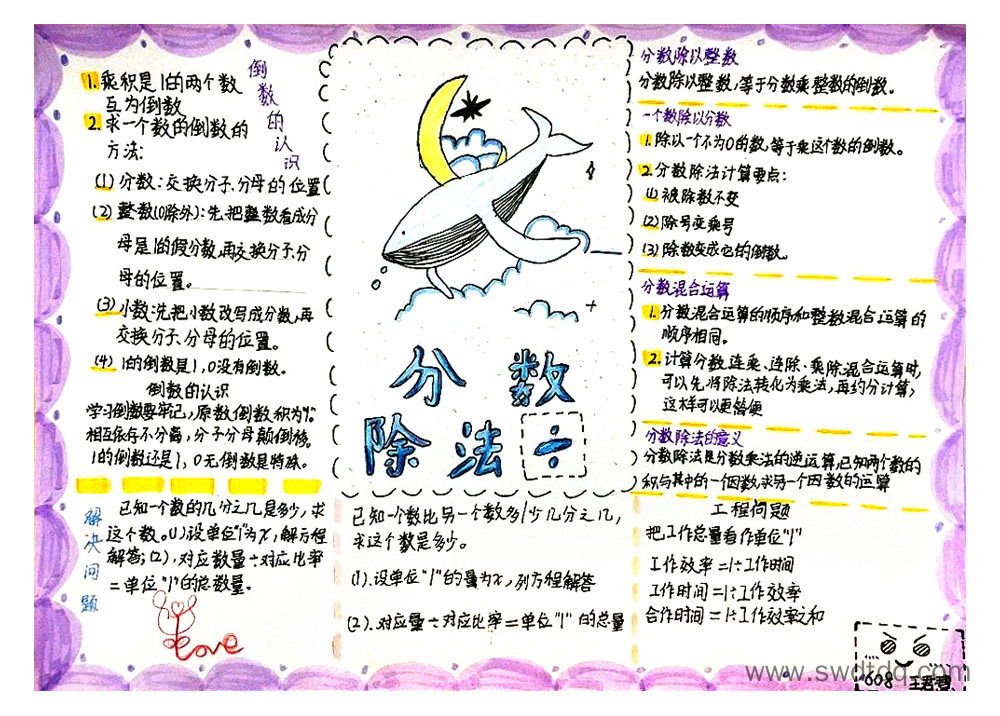 倒数的认识
1.乘积是1的两个数
互为倒数
2.求一个数的倒数的
方法:
(1)分数:交换分子、分母的位置
(2)整数(0除外):先把整数看成分
母是1的假分数,再交换分子、分
母的位置。
(3)小数:先把小数改写成分数,再
交换分子、分母的位置。
(4)1的倒数是1,0没有倒数。
倒数的认识
学习倒数要牢记,原数倒数积为1,
相互依存不分离,分子分母颠倒
1的倒数还是1,0无倒数是特殊。
分数
除法÷
分数除以整数
分数除以整数,等于分数乘整数的倒数。
一个数除以分数
1.除以一个不为0的数,等于乘这个数的倒数。
2.分数除法计算要点:
(1)被除数不变
(2)除号变乘号
(3)除数变成它的倒数。
分数混合运算
1.分数混合运算的顺序和整数混合运算的
顺序相同。
2.计算分数连乘、连除、乘除混合运算时,
可以先将除法转化为乘法,再约分计算,
这样可以更简便
分数除法的意义
分数除法是分数乘法的逆运算,已知两个数的
积与其中的一个因数,求另一个因数的运算
解决问题
已知一个数的几分之几是多少,求
这个数。(1)设单位"1"为x,解方程
解答;(2),对应数量÷对应比率
=单位"1"的总数量。
love
已知一个数比另一个数多/少几分之几,
求这个数是多少。
(1).设单位"1"的量为x,列方程解答
(2).对应量÷对应比率=单位"1"的总量
工程问题
把工作总量看作单位"1"
工作效率=1÷工作时间
工作时间=1÷工作效率
合作时间=1÷工作效率之和
608 王君
www.swdtdq.com